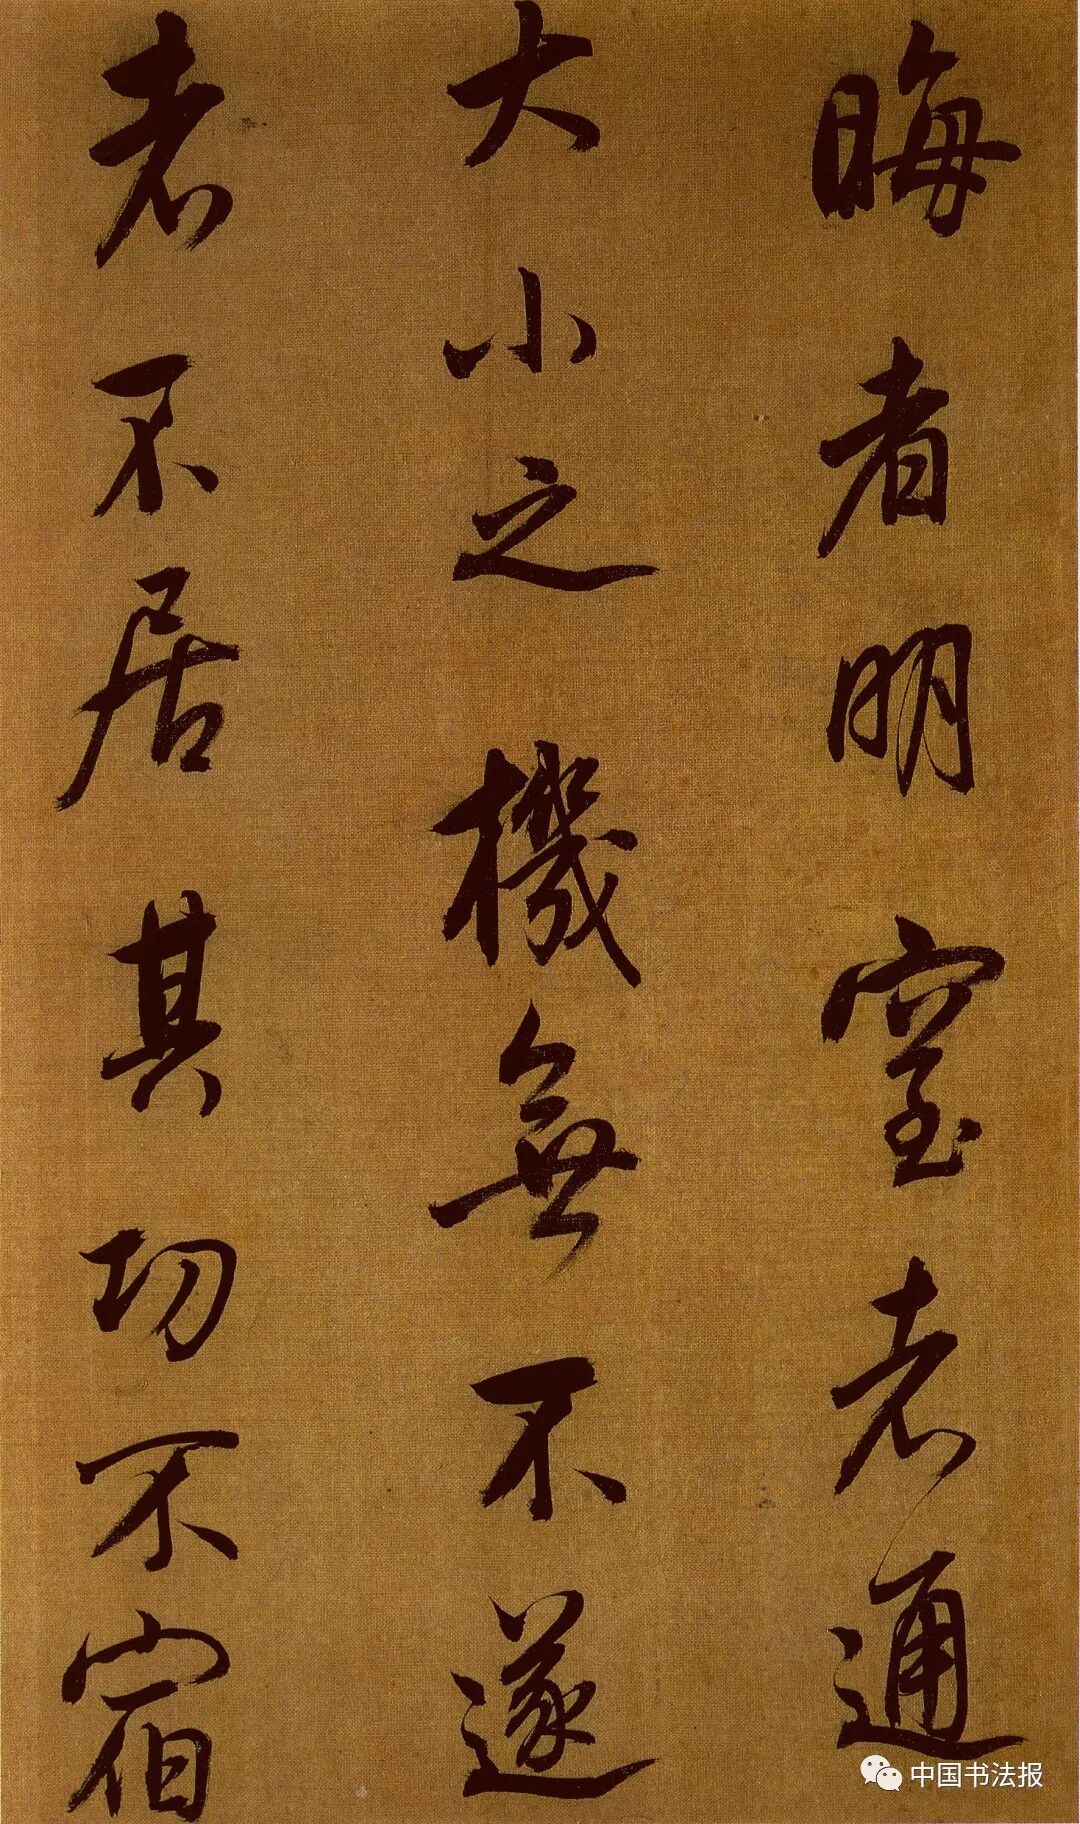 晦者明窒者通
大小之機無不遂
者不居其功不宿
中国书法报